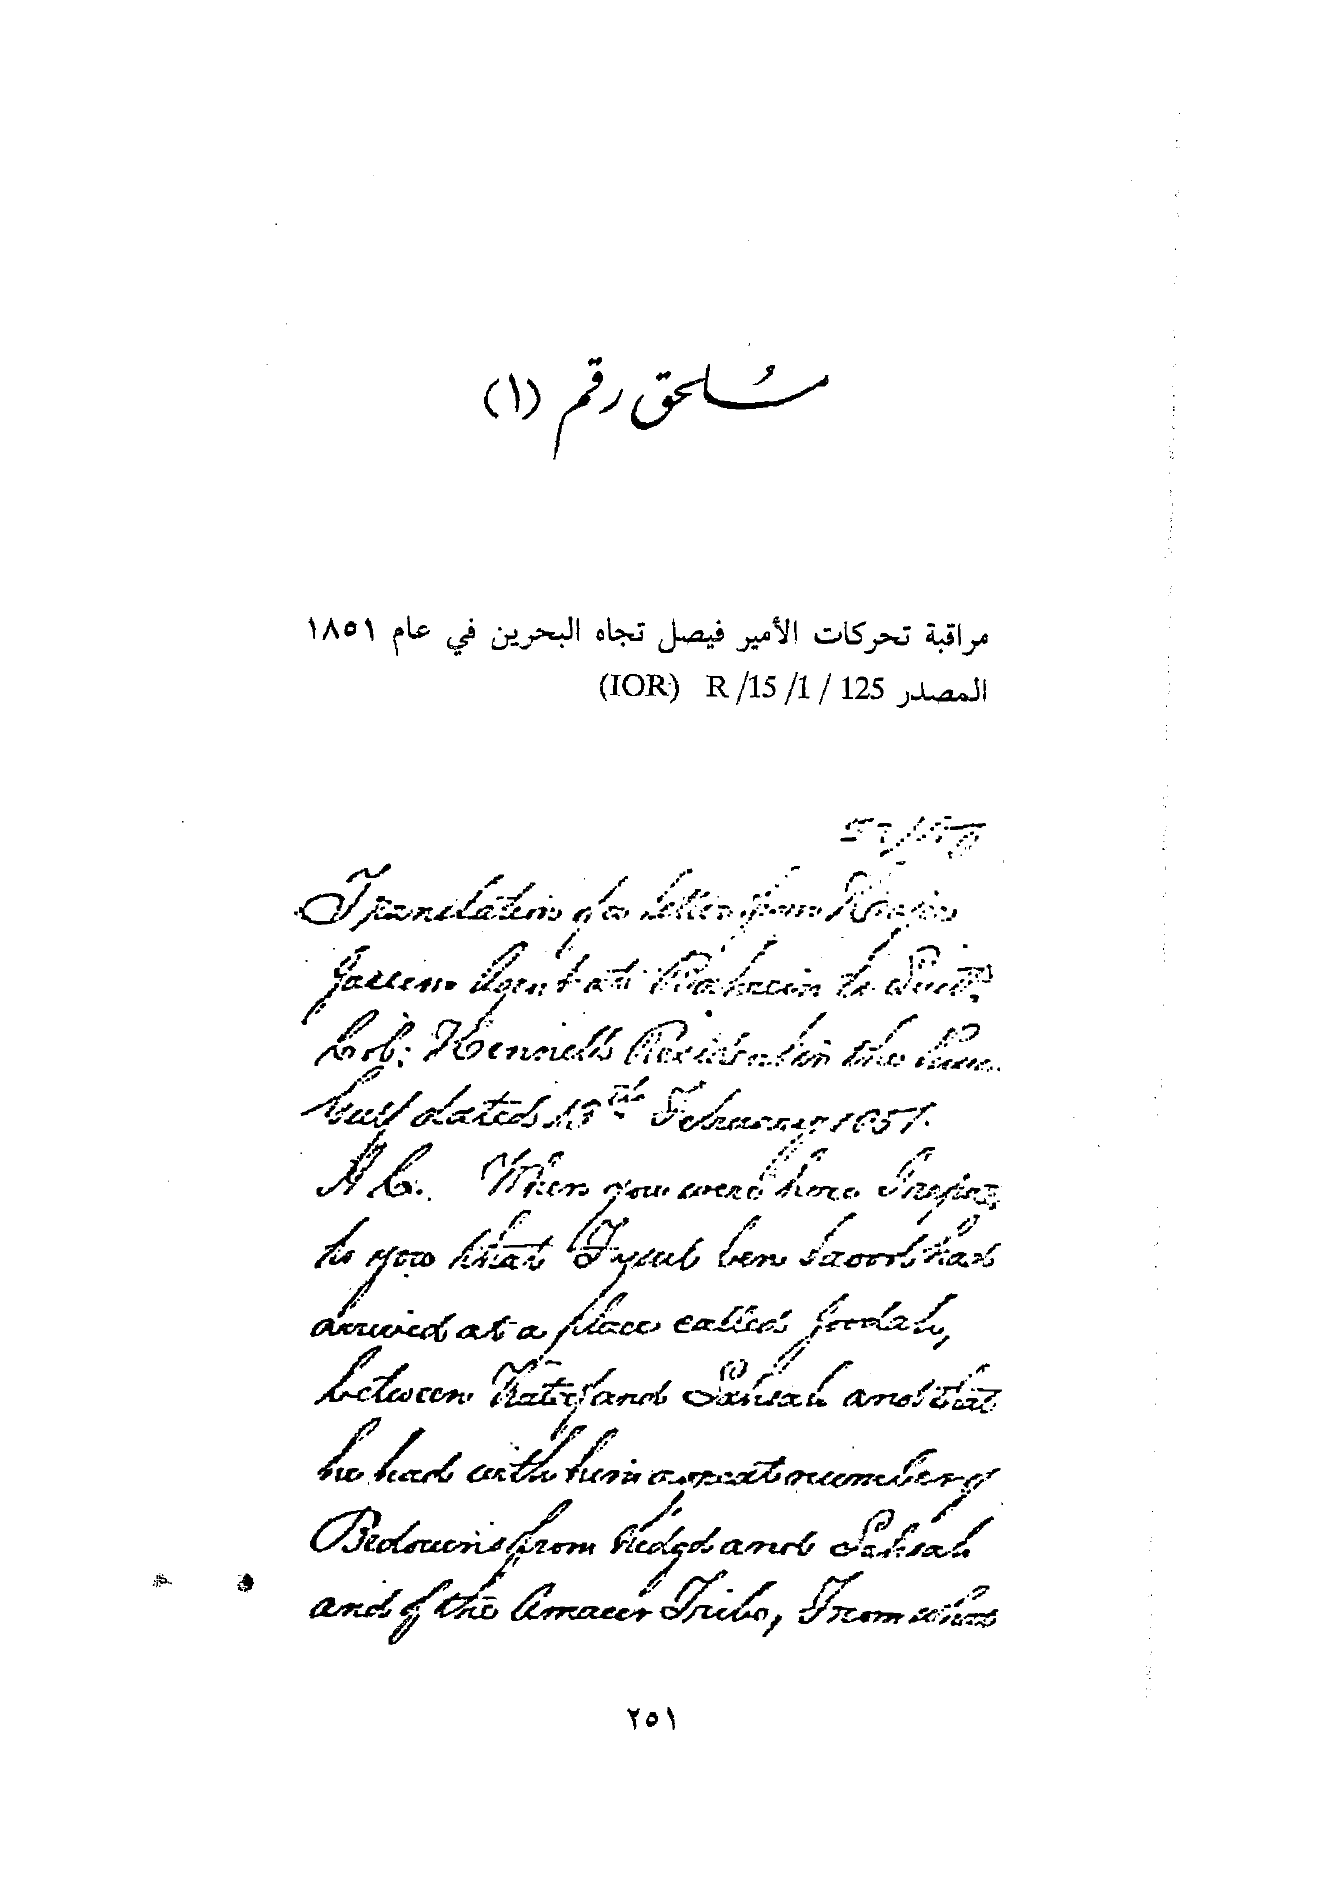 مُلحق رقم (١)
مراقبة تحركات الأمير فيصل تجاه البحرين في عام ١٨٥١
المصدر R/15/1/125 (IOR)
Translation of a letter from
Jassem Agent at Bahrein to Lieut.
Col. Hennell Resident in the
Gulf dated 13th February 1851.
A C. When you were here I
to you that Fysul ben Saood had
arrived at a place called Joodah,
between Katif and Lahsah and that
he had with him a great number of
Bedouins from Nedgd and Lahsah
and of the Amaeer Tribe, From what
٢٥١